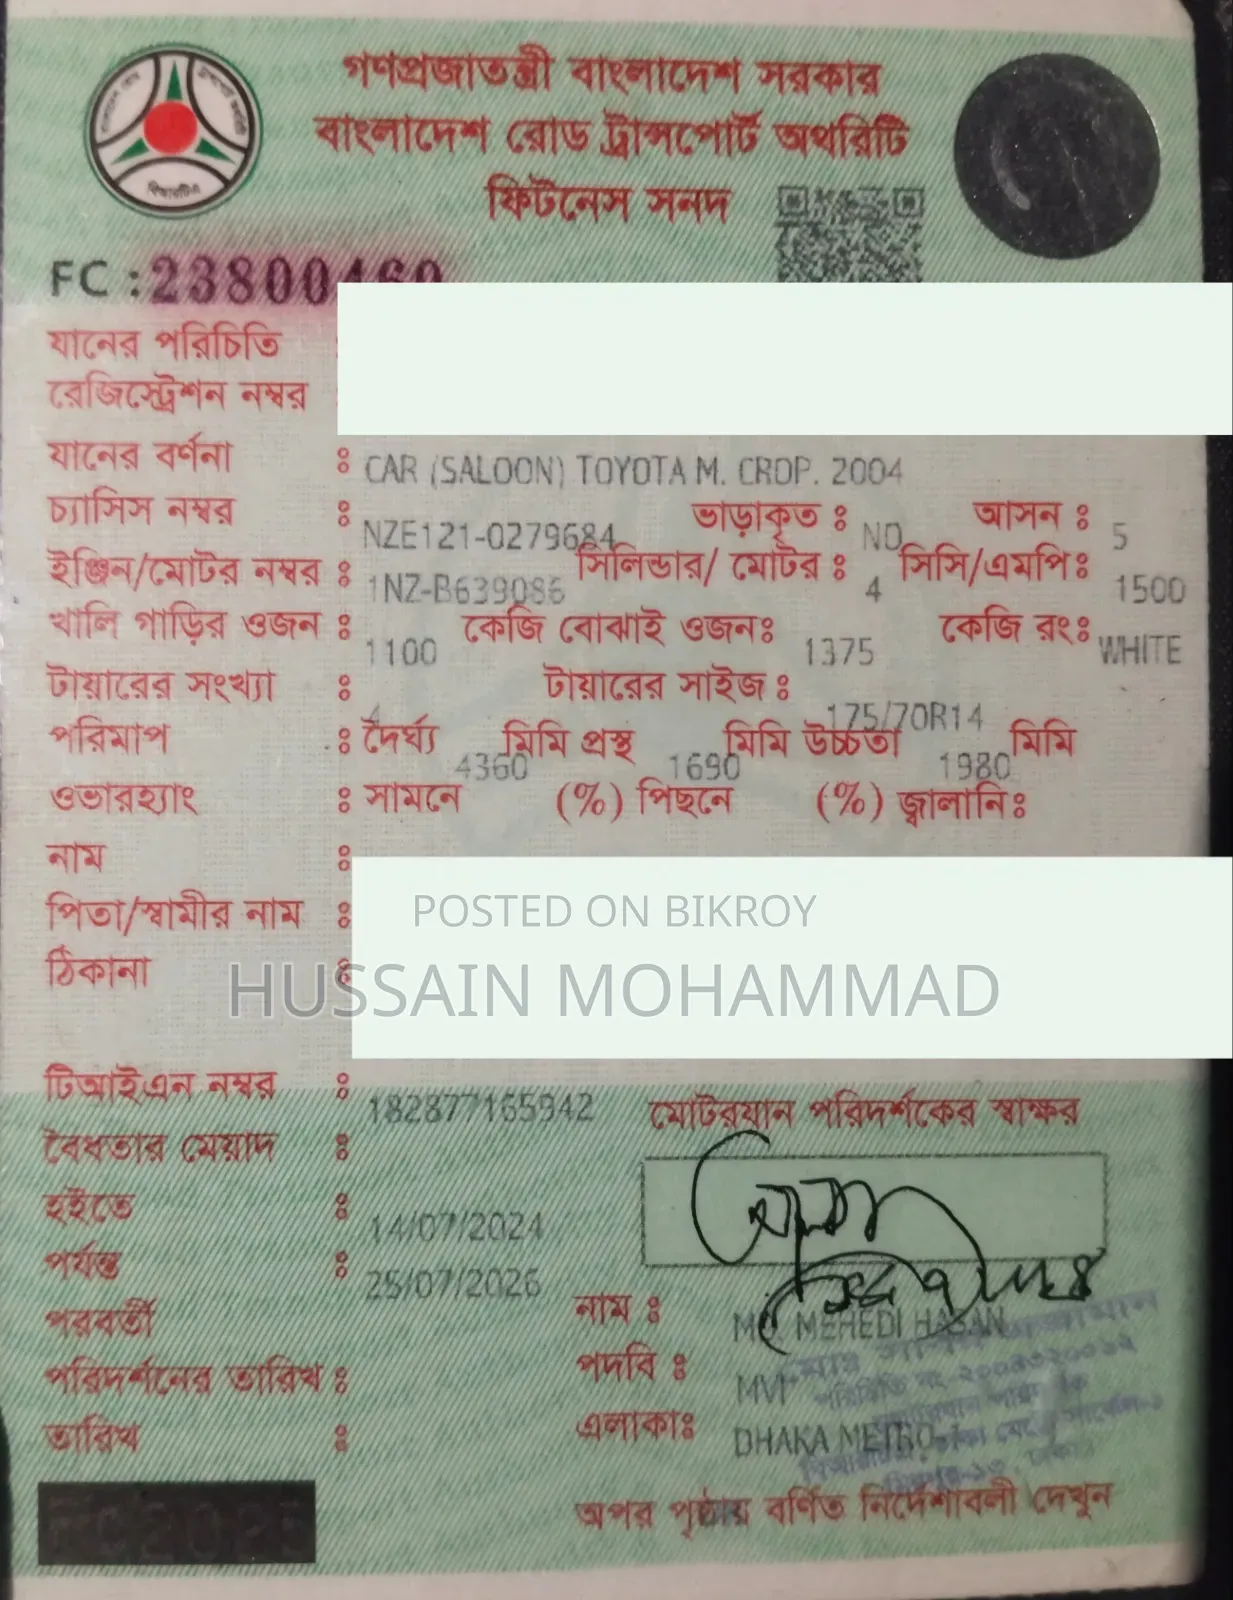 গণপ্রজাতন্ত্রী বাংলাদেশ সরকার
বাংলাদেশ রোড ট্রান্সপোর্ট অথরিটি
ফিটনেস সনদ
বিআরটিএ
FC : 23800460
যানের পরিচিতি :
রেজিস্ট্রেশন নম্বর :
যানের বর্ণনা : CAR (SALOON) TOYOTA M. CROP. 2004
চ্যাসিস নম্বর : NZE121-0279684 ভাড়াকৃত : NO আসন : 5
ইঞ্জিন/মোটর নম্বর : 1NZ-B639086 সিলিন্ডার/ মোটর : 4 সিসি/এমপি: 1500
খালি গাড়ির ওজন : 1100 কেজি বোঝাই ওজন: 1375 কেজি রং: WHITE
টায়ারের সংখ্যা : 4 টায়ারের সাইজ : 175/70R14
পরিমাপ : দৈর্ঘ্য 4360 মিমি প্রস্থ 1690 মিমি উচ্চতা 1980 মিমি
ওভারহ্যাং : সামনে (%) পিছনে (%) জ্বালানি:
নাম :
পিতা/স্বামীর নাম :
POSTED ON BIKROY
ঠিকানা :
HUSSAIN MOHAMMAD
টিআইএন নম্বর : 182877165942
মোটরযান পরিদর্শকের স্বাক্ষর
বৈধতার মেয়াদ :
হইতে : 14/07/2024
পর্যন্ত : 25/07/2026
নাম : MD. MEHEDI HASAN
পরবর্তী
পদবি : MVI
পরিদর্শনের তারিখ :
এলাকা: DHAKA METRO-1
তারিখ :
অপর পৃষ্ঠায় বর্ণিত নির্দেশাবলী দেখুন